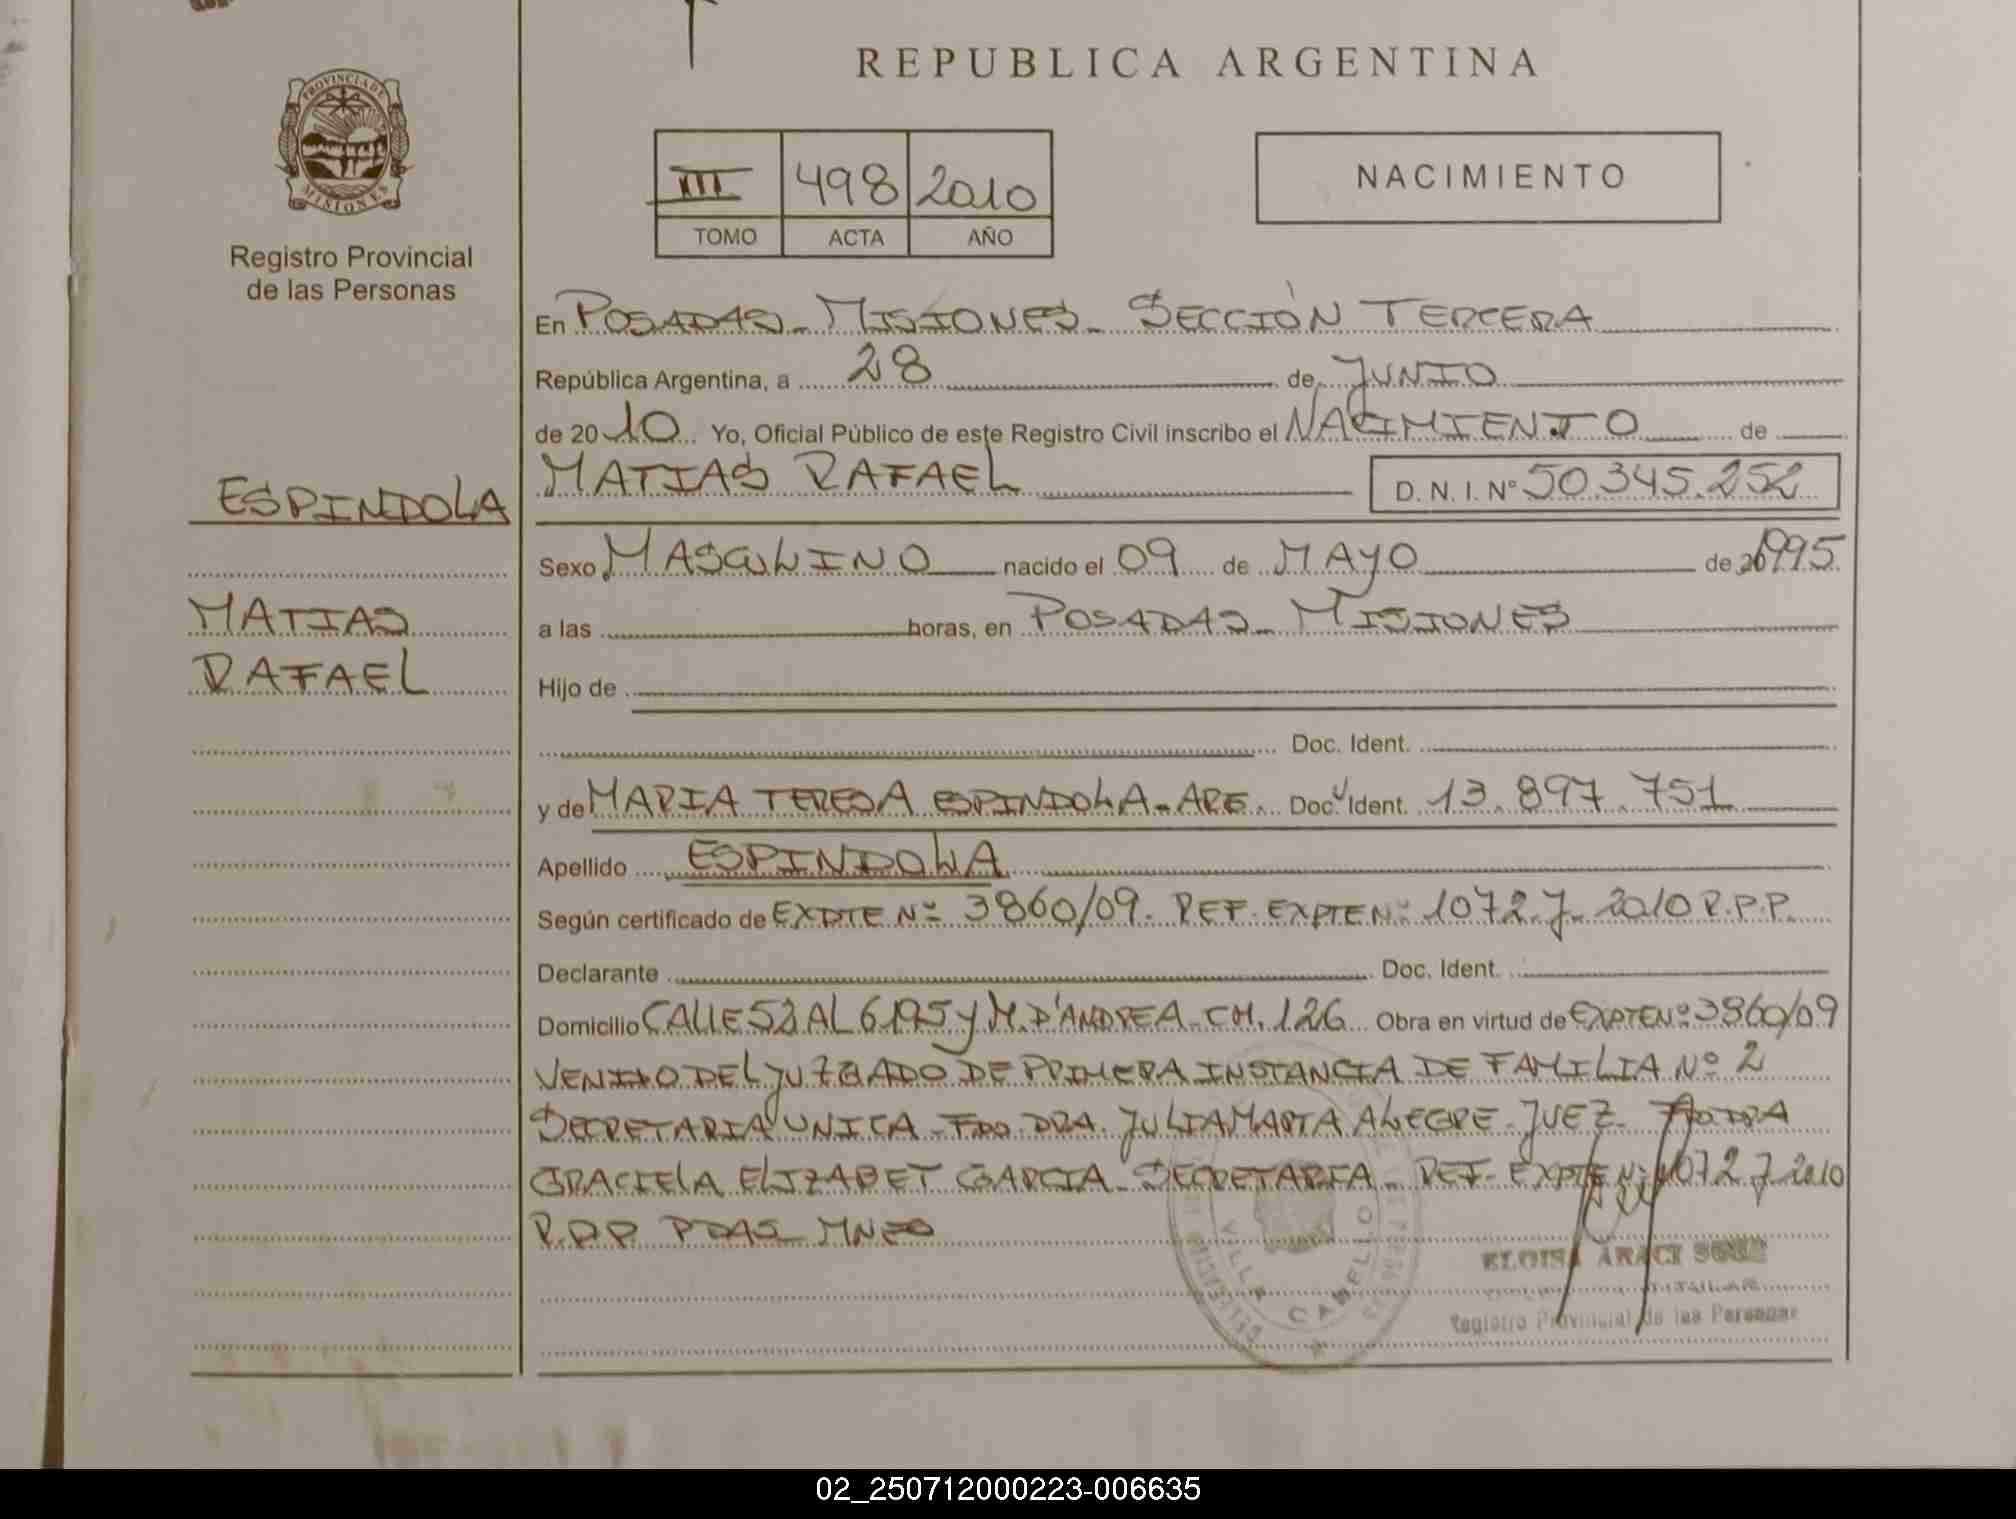 REPUBLICA ARGENTINA
PROVINCIA DE
MISIONES
Registro Provincial
de las Personas
III 498 2010
TOMO ACTA AÑO
NACIMIENTO
En POSADAS - MISIONES - SECCIÓN TERCERA
República Argentina, a 28 de JUNIO
de 2010 Yo, Oficial Público de este Registro Civil inscribo el NACIMIENTO de
MATIAS RAFAEL D. N. I. N° 50.345.252
ESPINDOLA
MATIAS
RAFAEL
Sexo MASCULINO nacido el 09 de MAYO de 1995
a las horas, en POSADAS - MISIONES
Hijo de
Doc. Ident.
y de MARIA TERESA ESPINDOLA - ARG. Doc. Ident. 13.897.751
Apellido ESPINDOLA
Según certificado de EXPTE Nº 3860/09. REF. EXPTE Nº 1072-J-2010 R.P.P.
Declarante Doc. Ident.
Domicilio CALLE 52 AL 6195 y M. D'ANDREA - CH. 126 Obra en virtud de EXPTE Nº 3860/09
VENIDO DEL JUZGADO DE PRIMERA INSTANCIA DE FAMILIA Nº 2
SECRETARIA UNICA - FDO DRA. JULIA MARTA ALEGRE - JUEZ - FDO DRA
GRACIELA ELIZABET GARCIA - SECRETARIA - REF. EXPTE Nº 1072-J-2010
R.P.P. PDAS - MNES
VILLA CABELLO
ELOISA ARACI
TITULAR
Registro Provincial de las Personas
02_250712000223-006635